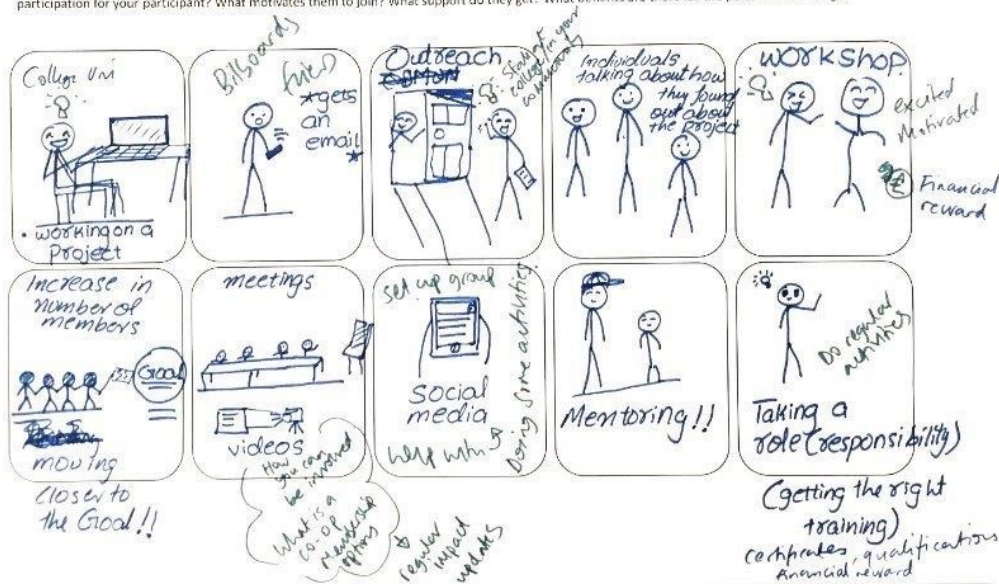 participation for your participant? What motivates them to join? What support do they get? What benefits are there for the
College Uni
• working on a
Project
Billboards
fried
*gets
an
email*
Outreach
Start at
college in your
Individuals
talking about how
they found
out about
the project
WORKSHOP
excited
Motivated
Financial
reward
Increase in
number of
members
Goal
moving
closer to
the Goal!!
meetings
videos
How
you can
be involved
What is a
co-op
membership
options
regular
impact
updates
set up group
social
media
help with
Doing some activities
Mentoring!!
Do regular
activities
Taking a
role (responsibility)
(getting the right
training)
certificates, qualifications
financial reward